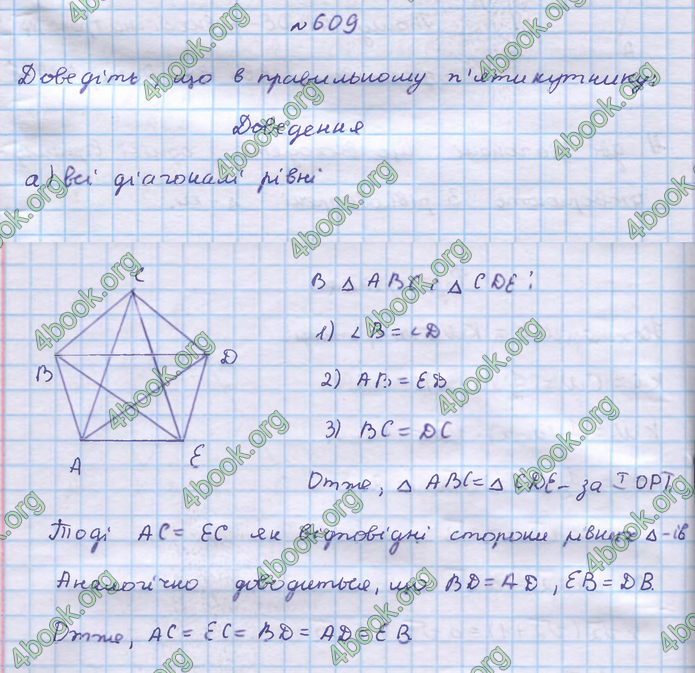 № 609
Доведіть, що в правильному п'ятикутнику:
Доведення
а) всі діагоналі рівні
C
B
D
A
E
В △ ABC і △ CDE:
1) ∠B = ∠D
2) AB = ED
3) BC = DC
Отже, △ ABC = △ CDE - за I ОРТ
Тоді AC = EC як відповідні сторони рівних △-ів
Аналогічно доводиться, що BD = AD, EB = DB.
Отже, AC = EC = BD = AD = EB
4book.org